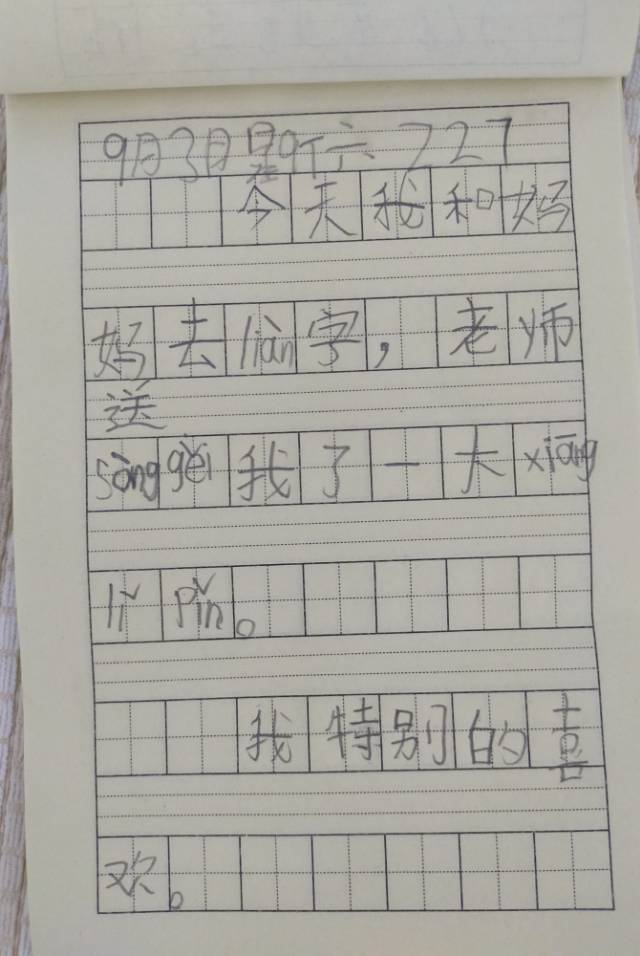 9月3日星期六 227
今天我和妈
妈去liàn字，老师
送
sònggěi我了一大xiāng
lǐ pǐn。
我特别的喜
欢。